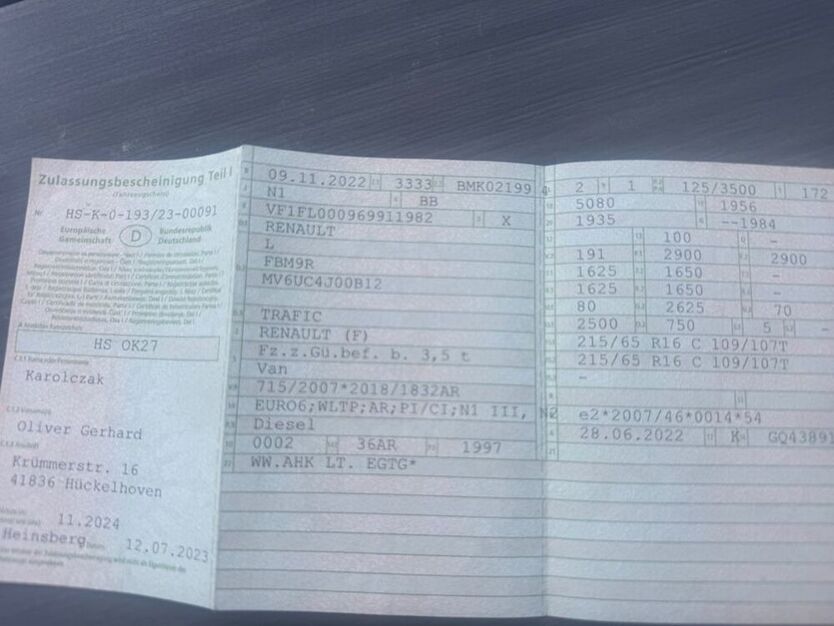 Zulassungsbescheinigung Teil I
(Fahrzeugschein)
Nr. HS-K-0-193/23-00091
Europäische Gemeinschaft D Bundesrepublik Deutschland
HS OK27
Karolczak
Oliver Gerhard
Krümmerstr. 16
41836 Hückelhoven
11.2024
Heinsberg 12.07.2023
09.11.2022 3333 BMK02199 4
N1 BB
VF1FL000969911982 X
RENAULT
L
FBM9R
MV6UC4J00B12
TRAFIC
RENAULT (F)
Fz.z.Gü.bef. b. 3,5 t
Van
715/2007*2018/1832AR
EURO6;WLTP;AR;PI/CI;N1 III, N2
Diesel
0002 36AR 1997
WW.AHK LT. EGTG*
2 1 125/3500 172
5080 1956
1935 --1984
100 -
191 2900 2900
1625 1650 -
1625 1650 -
80 2625 70
2500 750 5 -
215/65 R16 C 109/107T
215/65 R16 C 109/107T
-
e2*2007/46*0014*54
28.06.2022 K GQ43891